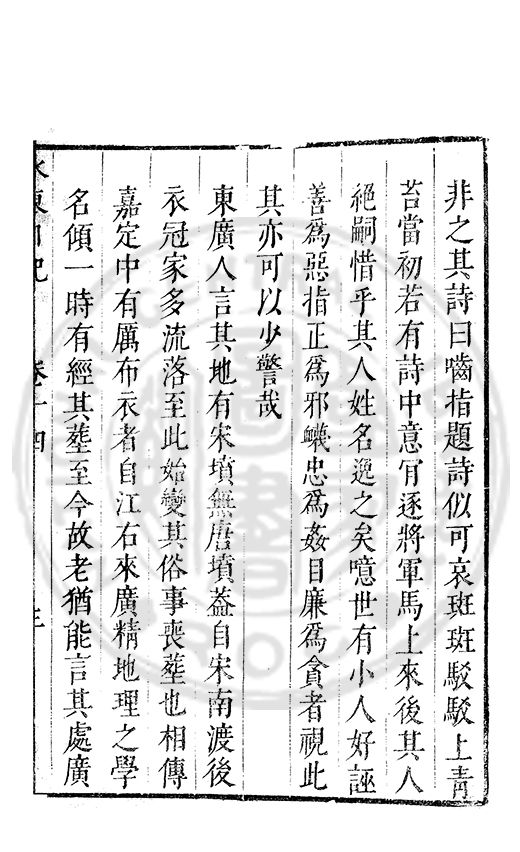 非之其詩曰嚙指題詩似可哀斑斑駁駁上青
苔當初若有詩中意肎逐將軍馬上來後其人
絕嗣惜乎其人姓名逸之矣噫世有小人好誣
善爲惡指正爲邪衊忠爲姦目廉爲貪者視此
其亦可以少警哉
東廣人言其地有宋墳無唐墳葢自宋南渡後
衣冠家多流落至此始變其俗事喪塟也相傳
嘉定中有厲布衣者自江右來廣精地理之學
名傾一時有經其塟至今故老猶能言其處廣
水東日記 卷十四